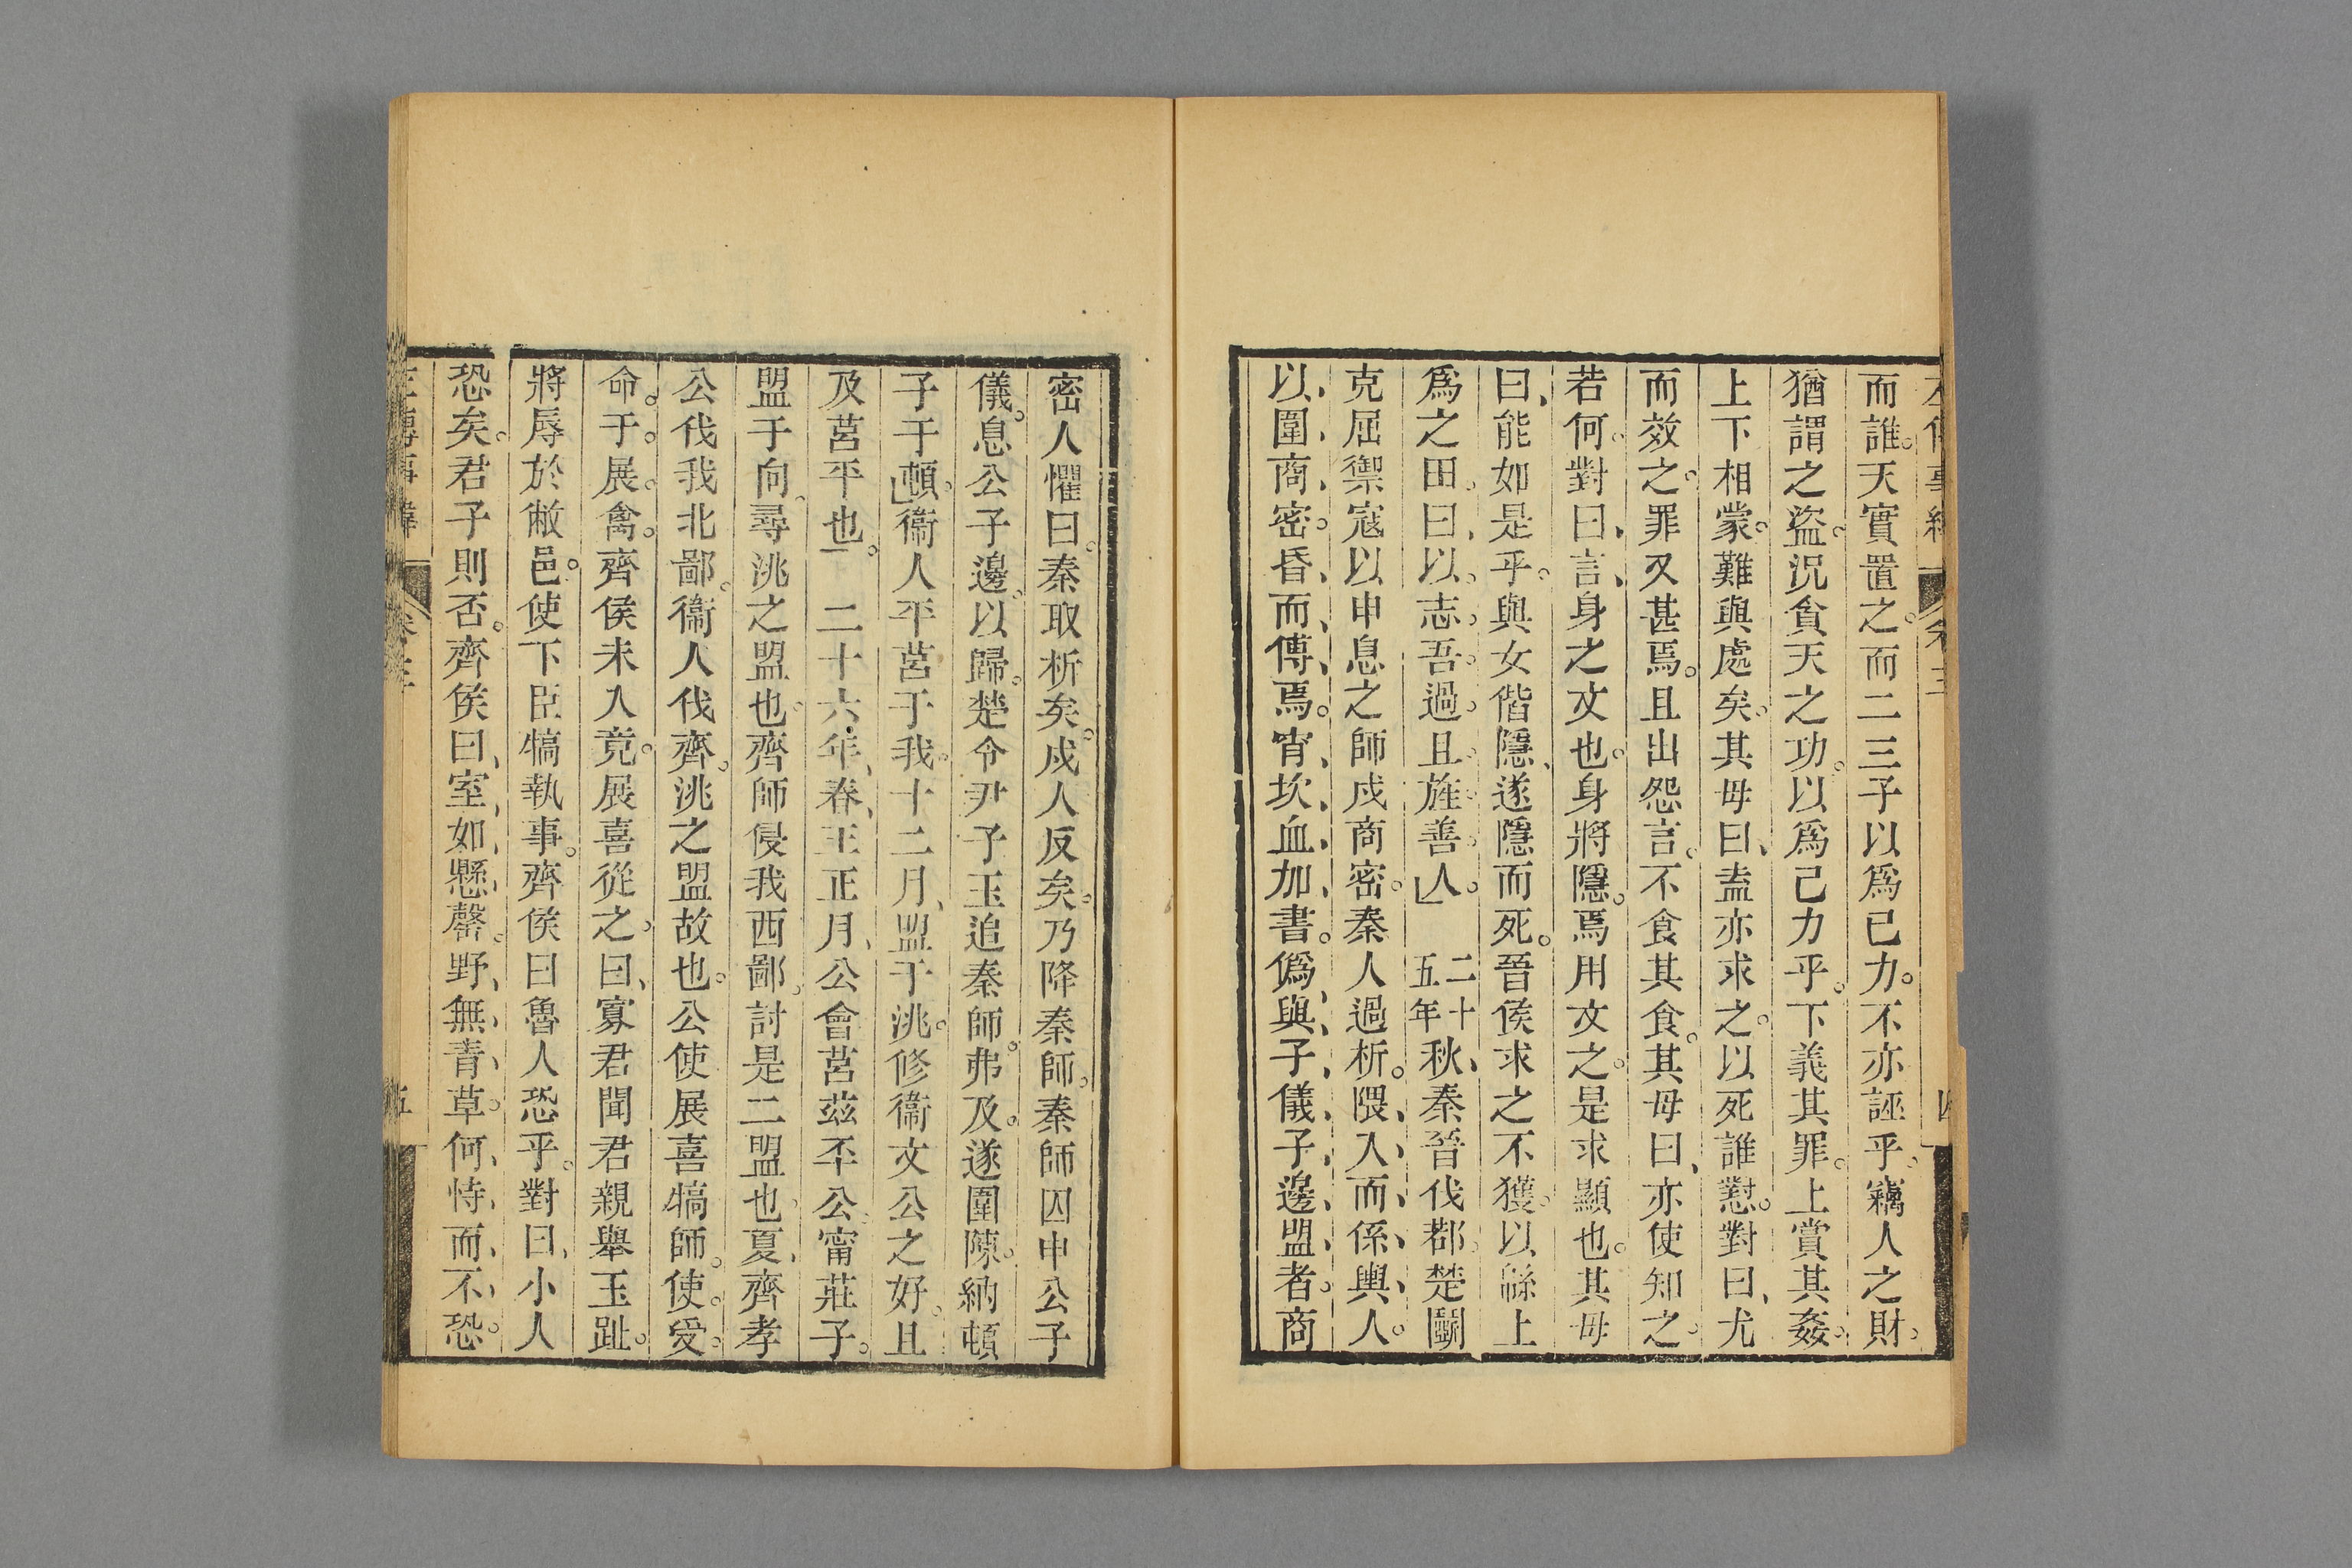 而誰。天實置之。而二三子以爲己力。不亦誣乎。竊人之財。
猶謂之盜。況貪天之功。以爲己力乎。下義其罪。上賞其姦。
上下相蒙。難與處矣。其母曰、盍亦求之。以死誰懟。對曰、尤
而效之。罪又甚焉。且出怨言。不食其食。其母曰、亦使知之。
若何。對曰、言、身之文也。身將隱。焉用文之。是求顯也。其母
曰、能如是乎。與女偕隱、遂隱而死。晉侯求之不獲。以緜上
爲之田。曰、以志吾過。且旌善人。」二十五年秋、秦晉伐鄀。楚鬭
克屈禦寇以申息之師戍商密。秦人過析。隈、入、而、係、輿、人。
以、圍、商、密。昏、而、傅、焉。宵、坎、血、加、書。僞、與、子、儀、子、邊、盟、者。商
密人懼曰。秦取析矣。戍人反矣。乃降秦師。秦師囚申公子
儀。息公子邊。以歸。楚令尹子玉追秦師。弗及。遂圍陳。納頓
子于頓。」衞人平莒于我。十二月、盟于洮。修衞文公之好。且
及莒平也。 二十六年、春、王正月、公會莒茲丕公。甯莊子。
盟于向。尋洮之盟也。齊師侵我西鄙。討是二盟也。夏、齊孝
公伐我北鄙。衞人伐齊。洮之盟故也。公使展喜犒師。使。受。
命。于。展。禽。齊侯未入竟。展喜從之。曰、寡君聞君親舉玉趾。
將辱於敝邑。使下臣犒執事。齊侯曰魯人恐乎。對曰、小人
恐矣。君子則否。齊侯曰、室、如、懸、罄。野、無、青、草。何、恃、而、不、恐。
左傳事緯 卷三 五